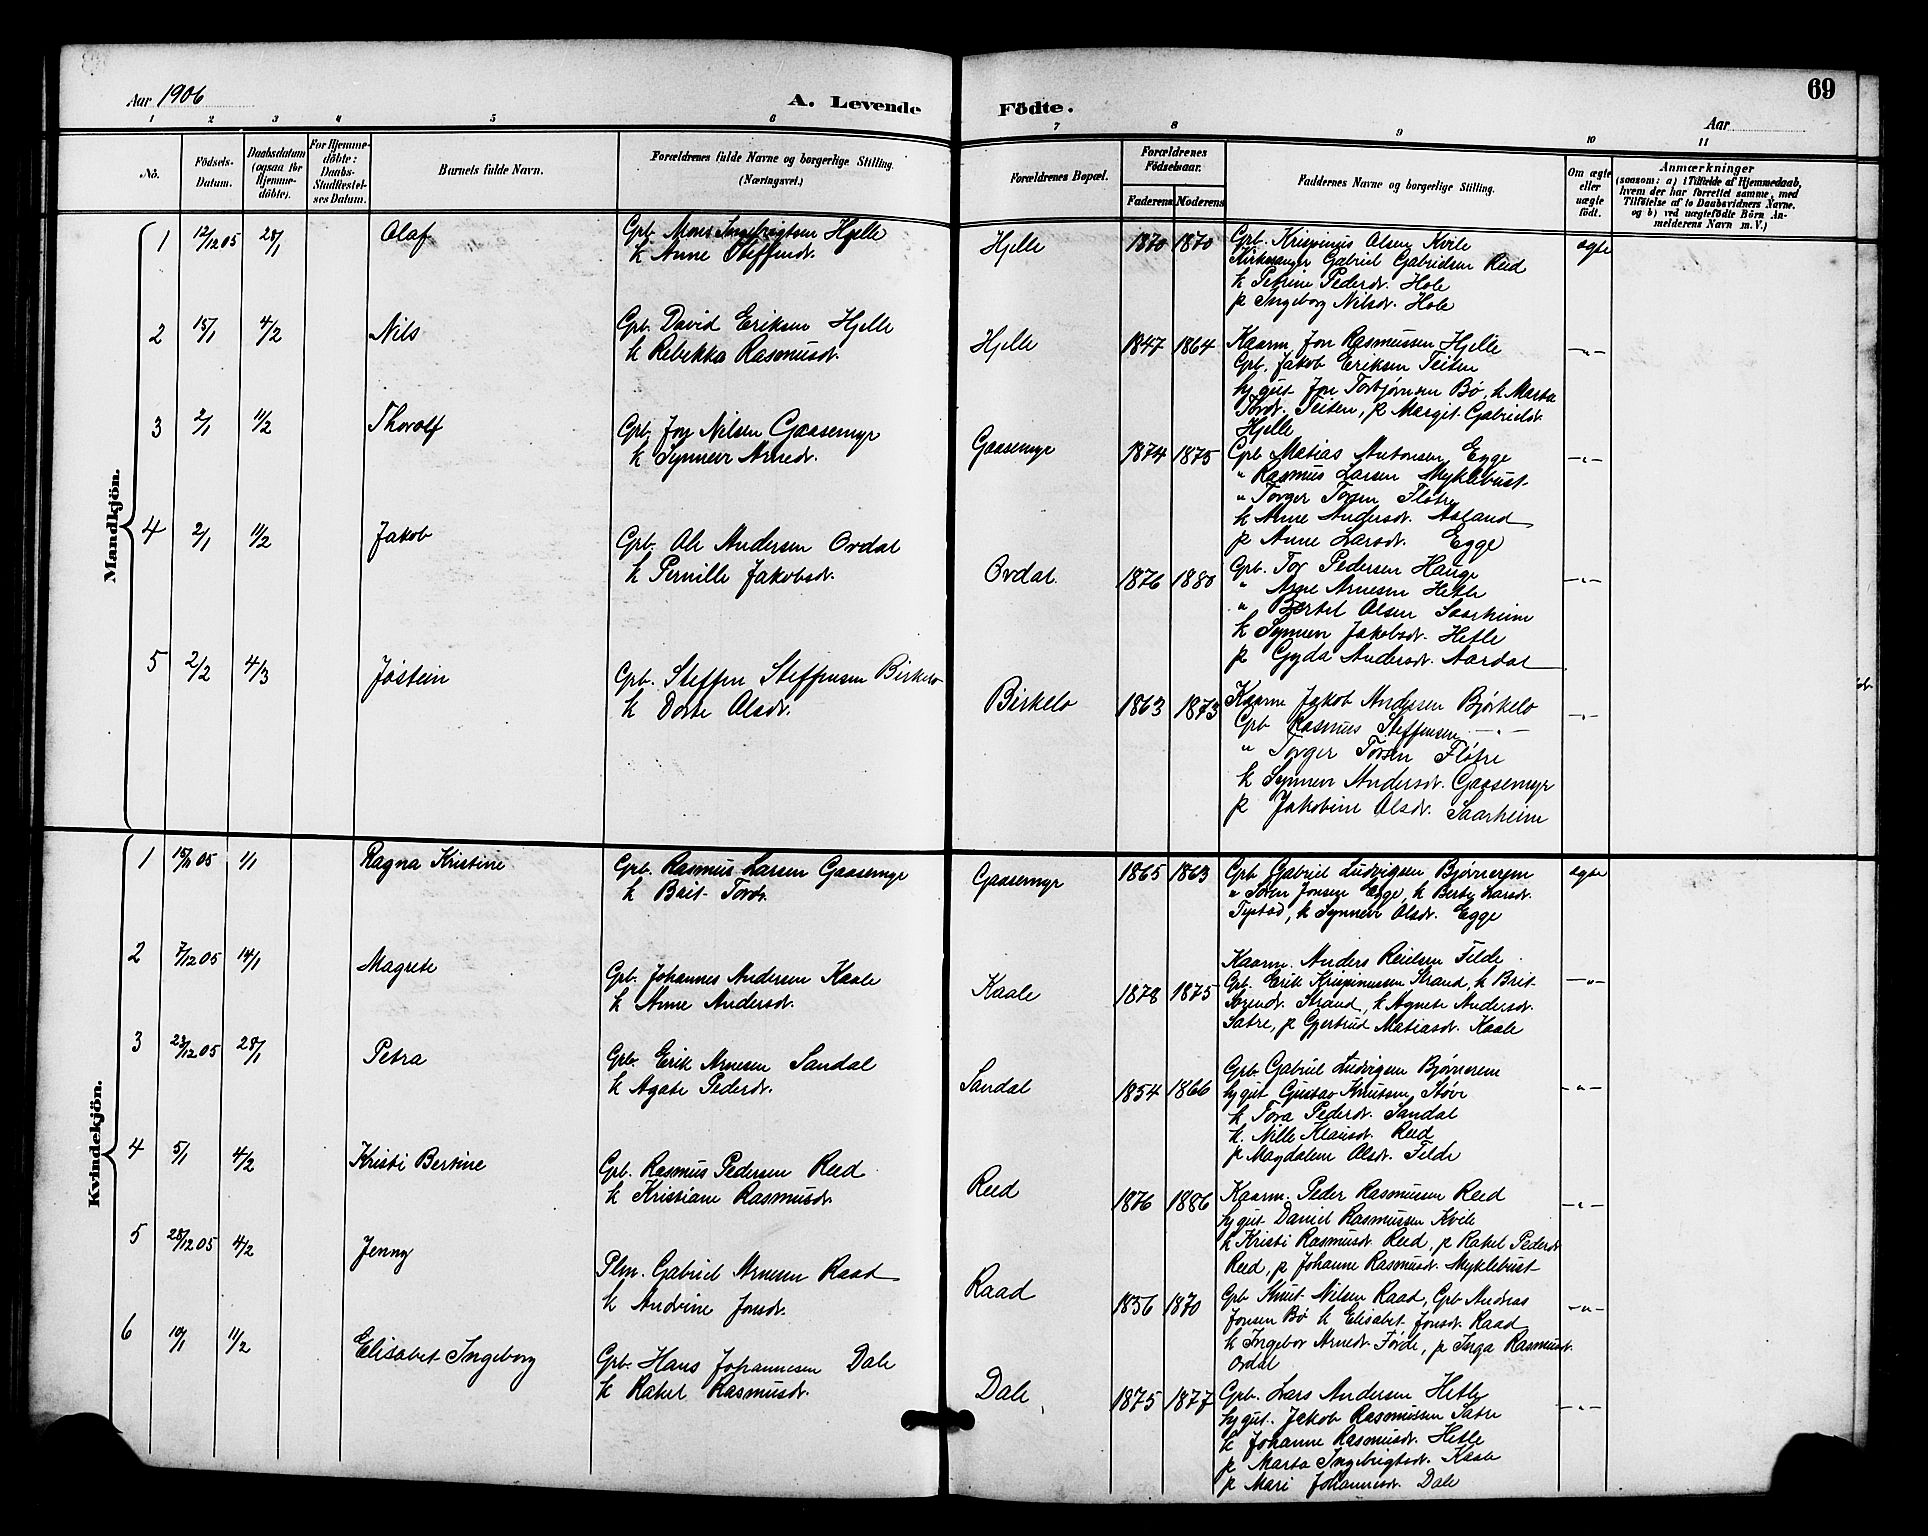 Aar 1906
A. Levende
Födte.
69
Aar
1 2 3 4 5 6 7 8 9 10 11
No.
Födsels-
Datum.
Daabsdatum
(ogsaa for
Hjemme-
döbte).
For Hjemme-
döbte:
Daabs-
Stadfæstel-
ses Datum.
Barnets fulde Navn.
Forældrenes fulde Navne og borgerlige Stilling.
(Næringsvei.)
Forældrenes Bopæl.
Forældrenes
Födselsaar.
Faderens Moderens
Faddernes Navne og borgerlige Stilling.
Om ægte
eller
uægte
födt.
Anmærkninger
(saasom: a) i Tilfælde af Hjemmedaab,
hvem der har forrettet samme, med
Tilföielse af to Daabsvidners Navne,
og b) ved uægtefödte Börn An-
melderens Navn m.V.)
Mandkjön.
1 12/12 05 28/1 Olaf
Gbr. Mons Ingebrigtsen Hjelle
k Anne Steffensdr.
Hjelle 1870 1870
Gbr. Krispinus Olsen Kvile
Kirkesanger Gabriel Gabrielsen Reed
k Petrine Pedersdr. Hole
p Ingeborg Nilsdr. Hole
ægte
2 15/1 4/2 Nils
Gbr. David Eriksen Hjelle
k Rebekka Rasmusdr.
Hjelle 1847 1864
Kaarm. Jon Rasmussen Hjelle
Gbr. Jakob Eriksen Teiten
ty gut Jon Torbjørnsen Bø, k Marta
Tordr. Teiten, p Margit Gabrielsdr.
Hjelle
-"-
3 2/1 11/2 Thorolf
Gbr. Jon Nilsen Gaasemyr
k Synneve Arnedr.
Gaasemyr 1874 1875
Gbr Matias Antonsen Egge
" Rasmus Larsen Myklebust
" Torger Torsen Fløtre
k Anne Andersdr. Aaland
p Anne Larsdr. Egge
-"-
4 2/1 11/2 Jakob
Gbr. Ole Andersen Ordal
k Pernille Jakobsdr.
Ordal 1876 1880
Gbr. Tor Pedersen Hauge
" Arne Arnesen Hetle
" Bertel Olsen Saarheim
k Synneve Jakobsdr. Hetle
p Gyda Andersdr. Aardal
-"-
5 2/2 4/3 Jøstein
Gbr. Steffen Steffensen Birkelo
k Dorte Olsdr.
Birkelo 1863 1873
Kaarm Jakob Andersen Bjørkelo
Gbr Rasmus Steffensen -"-
" Torger Torsen Fløtre
k Synneve Andersdr. Gaasemyr
p Jakobine Olsdr. Saarheim
-"-
Kvindekjön.
1 1/1 Ragna Kristine
Gbr. Rasmus Larsen Gaasemyr
k Brit Tordr.
Gaasemyr 1865 1863
Gbr Gabriel Ludvigsen Bjørnerem
" Søren Jonsen Egge, k Berthe Larsdr.
Tystad, k Synneve Olsdr. Egge
ægte
2 7/12 05 14/1 Magrete
Gbr. Johannes Andersen Kaale
k Anne Andersdr.
Kaale 1878 1875
Kaarm. Anders Reielsen Felde
Gbr. Erik Krispinussen Strand, k Brit
Sørensdr. Strand, k Agnete Andersdr.
Sætre, p Gjertrud Matiasdr. Kaale
-"-
3 05 28/1 Petra
Gbr. Erik Arnesen Sandal
k Agate Pedersdr.
Sandal 1854 1866
Gbr Gabriel Ludvigsen Bjørnerem
ty gut Gustav Knutsen Støve
k Tora Pedersdr. Sandal
k. Nille Klausdr. Reed
p Magdalene Olsdr. Felde
-"-
4 5/1 4/2 Kristi Bertine
Gbr. Rasmus Pedersen Reed
k Kristiane Rasmusdr.
Reed 1876 1886
Kaarm. Peder Rasmussen Reed
ty gut Daniel Rasmussen Kvile
k Kristi Rasmusdr. Reed, p Rakel Pedersdr
Reed, p Johanne Rasmusdr. Myklebust
-"-
5 28/12 05 4/2 Jenny
Plm. Gabriel Arnesen Raad
k Andrine Jonsdr.
Raad 1856 1870
Gbr Knut Nilsen Raad, Gbr Andreas
Jonsen Bø k Elisabet Jonsdr. Raad
k Ingebor Arnedr. Førde, p Inga Rasmusdr.
Ordal
-"-
6 10/1 11/2 Elisabet Ingeborg
Gbr. Hans Johannesen Dale
k Rakel Rasmusdr.
Dale 1875 1877
Gbr. Lars Andersen Hetle
ty gut. Jakob Rasmussen Sætre
k Johanne Rasmusdr. Hetle
p Marta Ingebrigtsdr. Kaale
p Mari Johannesdr. Dale
-"-